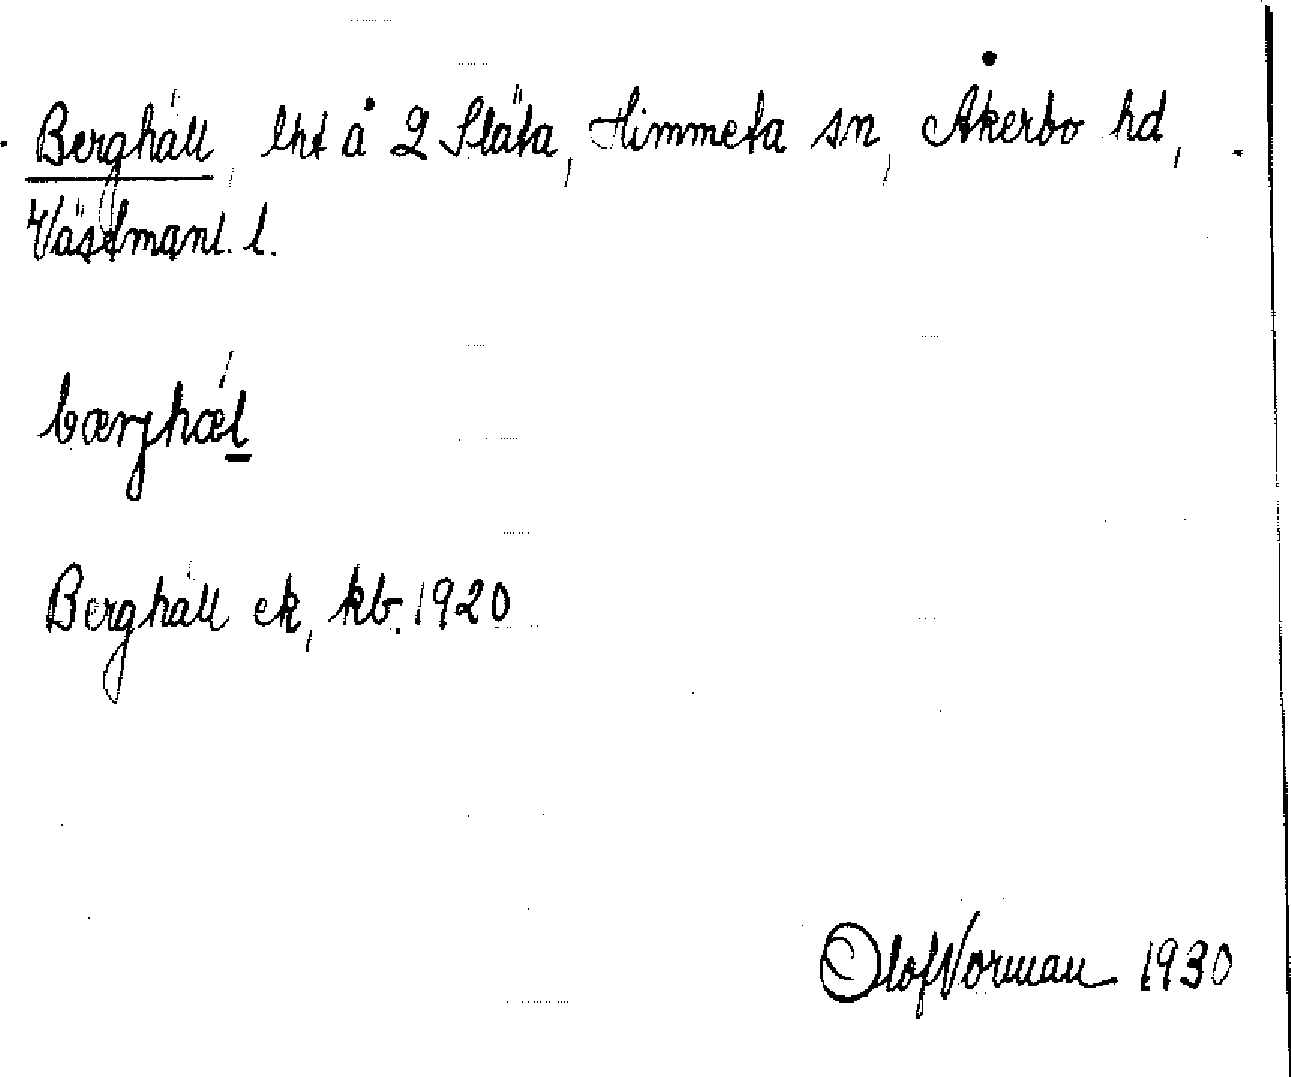 Berghäll, lht å 2 Släta, Himmeta sn, Åkerbo hd,
Västmanl. l.
bærjhǽl
Berghäll ek, kb. 1920
Olof Norman 1930